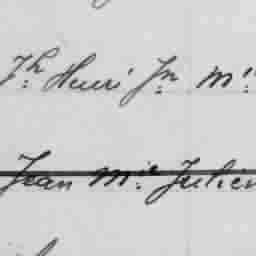 Jh Henri Jn Mie
Jean Mie Julien